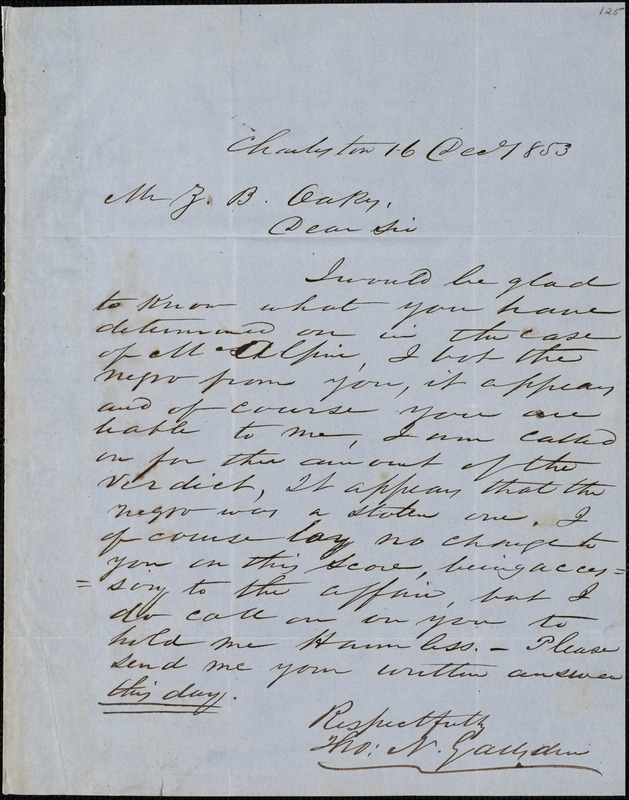 125
Charleston 16 Decr 1853
Mr Z. B. Oakes,
Dear Sir
I would be glad
to know what you have
determined on in the case
of McAlpin, I bot the
negro from you, it appears
and of course you are
liable to me, I am called
on for the amount of the
verdict, It appears that the
negro was a stolen one. I
of course lay no charge to
you on this score, being acces=
=sory to the affair, but I
do call on on you to
hold me Harmless. - Please
send me your written answer
this day.
Respectfully
Tho: N. Gadsden